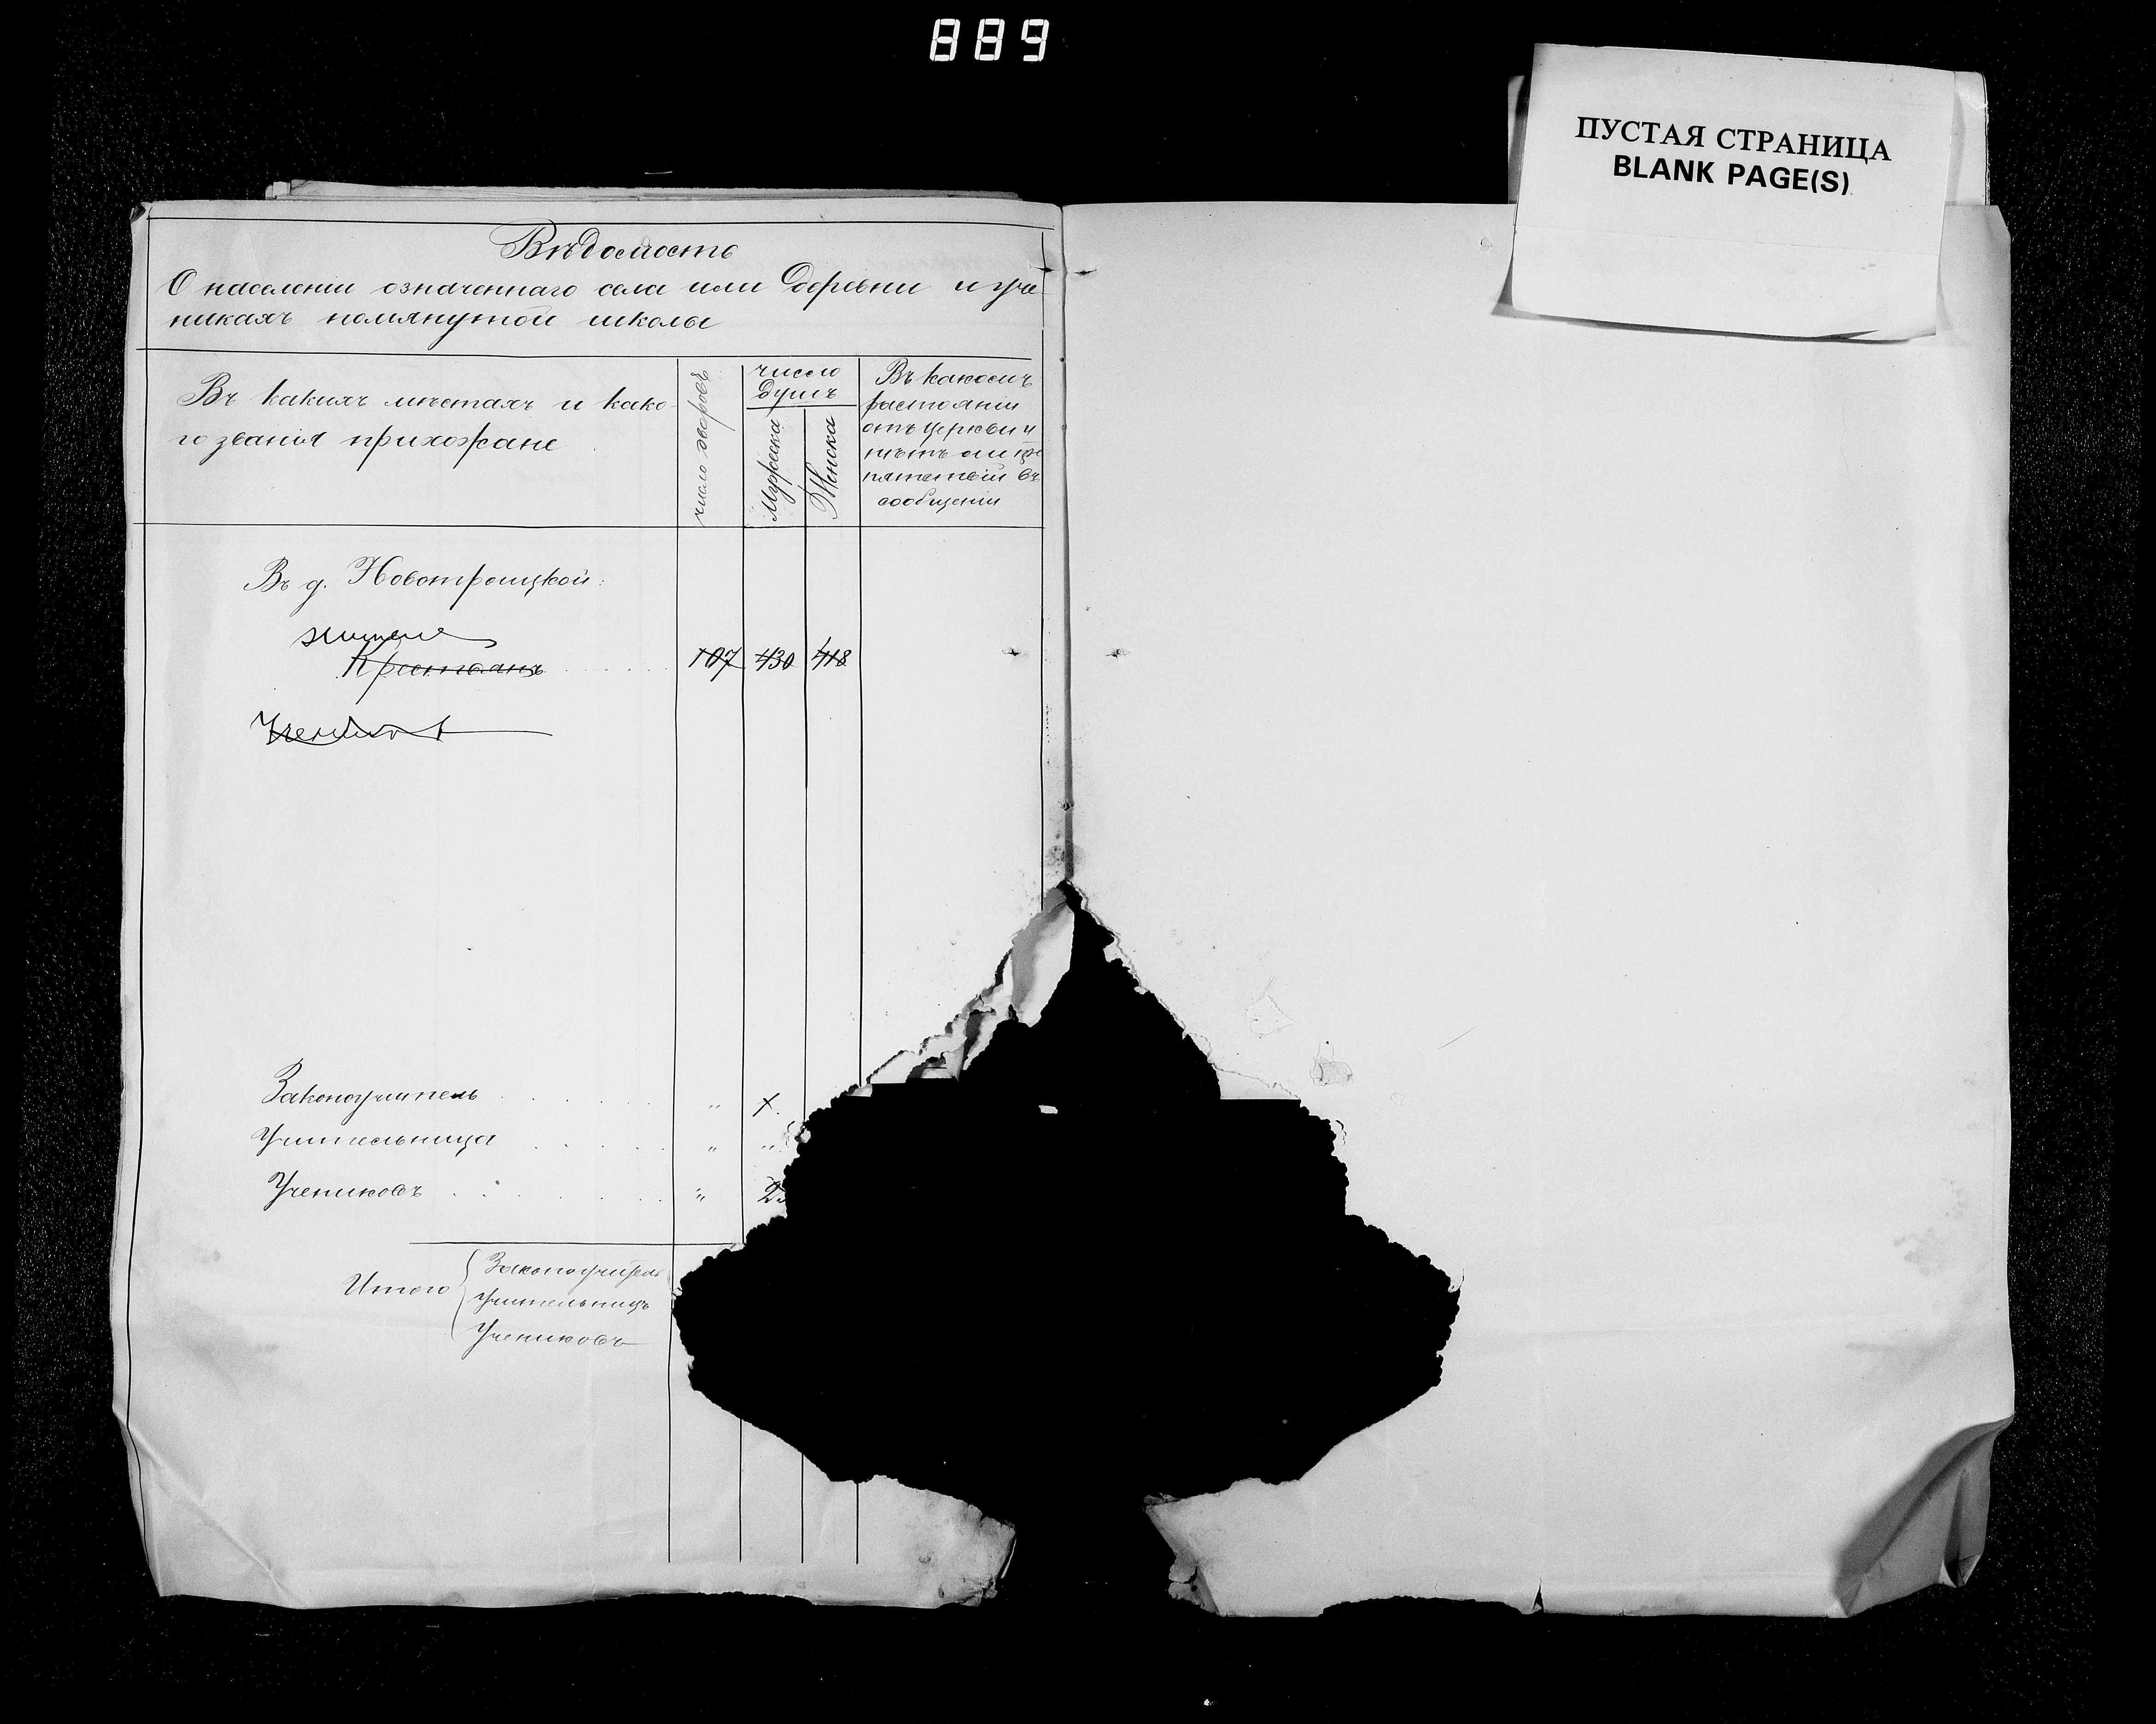 889
ПУСТАЯ СТРАНИЦА
BLANK PAGE(S)
Вѣдомость
О населеніи означеннаго села или деревни и уче
никахъ помянутой школы
Въ какихъ мѣстахъ и како-
го званія прихожане
число дворовъ
число
душъ
Мужеска
Женска
Въ какомъ
растояніи
отъ церкви и
нѣтъ ли пре
пятствій въ
сообщеніи
Въ д. Новотроицкой:
жители
Крестьянъ 107 430 418
Учениковъ
Законоучитель " 1.
Учительница " "
Учениковъ " 2
Итого
Законоучитель
Учительницъ
Учениковъ